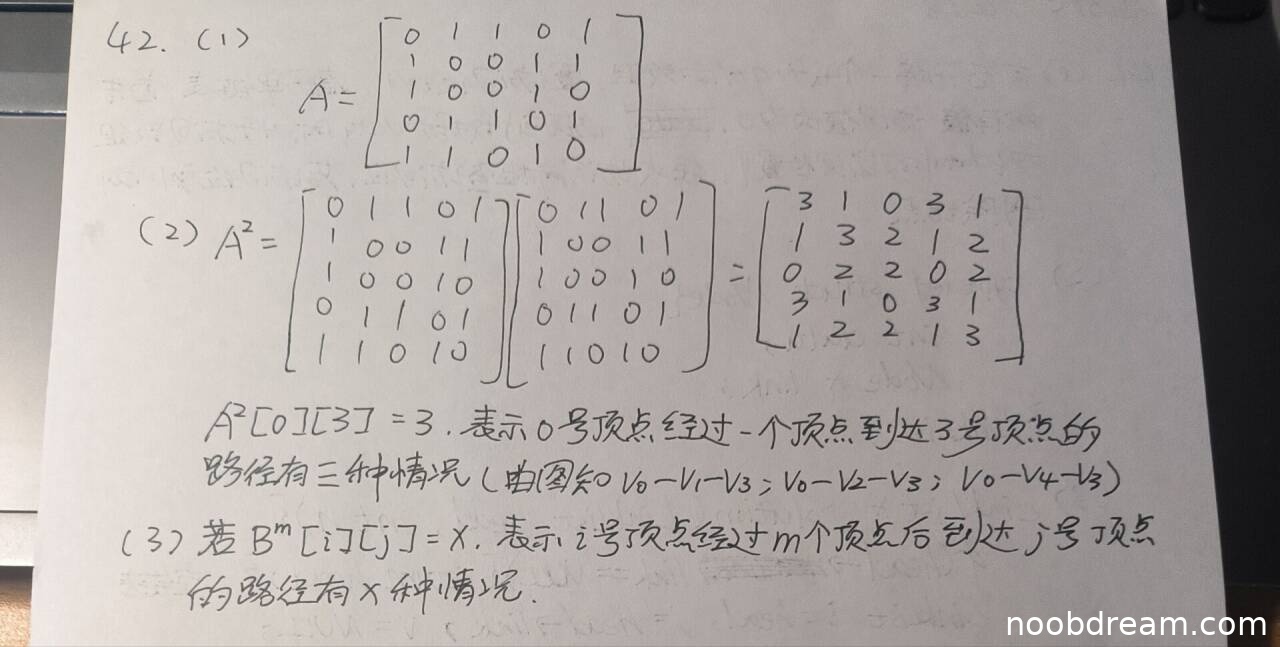 42. (1)
A = [0 1 1 0 1
1 0 0 1 1
1 0 0 1 0
0 1 1 0 1
1 1 0 1 0]
(2) A² = [0 1 1 0 1 ; 1 0 0 1 1 ; 1 0 0 1 0 ; 0 1 1 0 1 ; 1 1 0 1 0] [0 1 1 0 1 ; 1 0 0 1 1 ; 1 0 0 1 0 ; 0 1 1 0 1 ; 1 1 0 1 0] = [3 1 0 3 1 ; 1 3 2 1 2 ; 0 2 2 0 2 ; 3 1 0 3 1 ; 1 2 2 1 3]
A²[0][3] = 3. 表示0号顶点经过一个顶点到达3号顶点的
路径有三种情况(由图知 V0-V1-V3; V0-V2-V3; V0-V4-V3)
(3) 若 Bᵐ[i][j] = X. 表示i号顶点经过m个顶点后到达j号顶点
的路径有X种情况.
noobdream.com